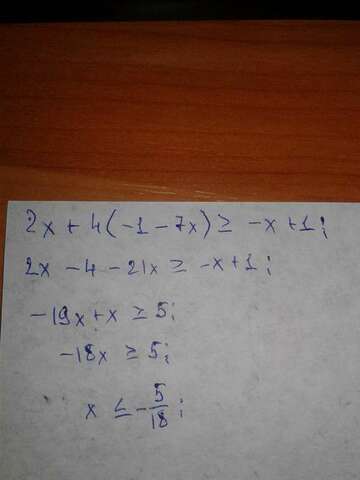 2x + 4(-1 - 7x) ≥ -x + 1;
2x - 4 - 21x ≥ -x + 1;
-19x + x ≥ 5;
-18x ≥ 5;
x ≤ -5/18;